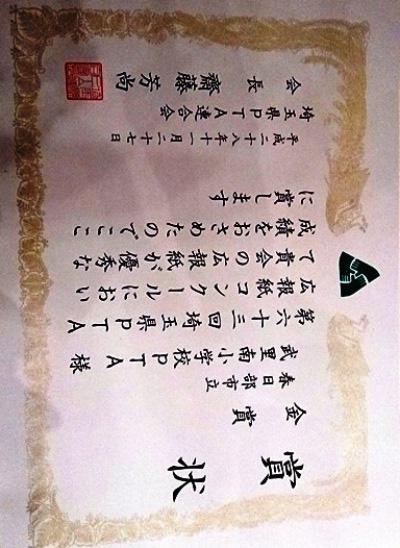 賞状
金賞
春日部市立
武里南小学校PTA様
第六十三回埼玉県PTA
広報紙コンクールにおい
て貴会の広報紙が優秀な
成績をおさめたのでここ
に賞します
平成二十八年十一月二十七日
埼玉県PTA連合会
会長 齋藤芳尚